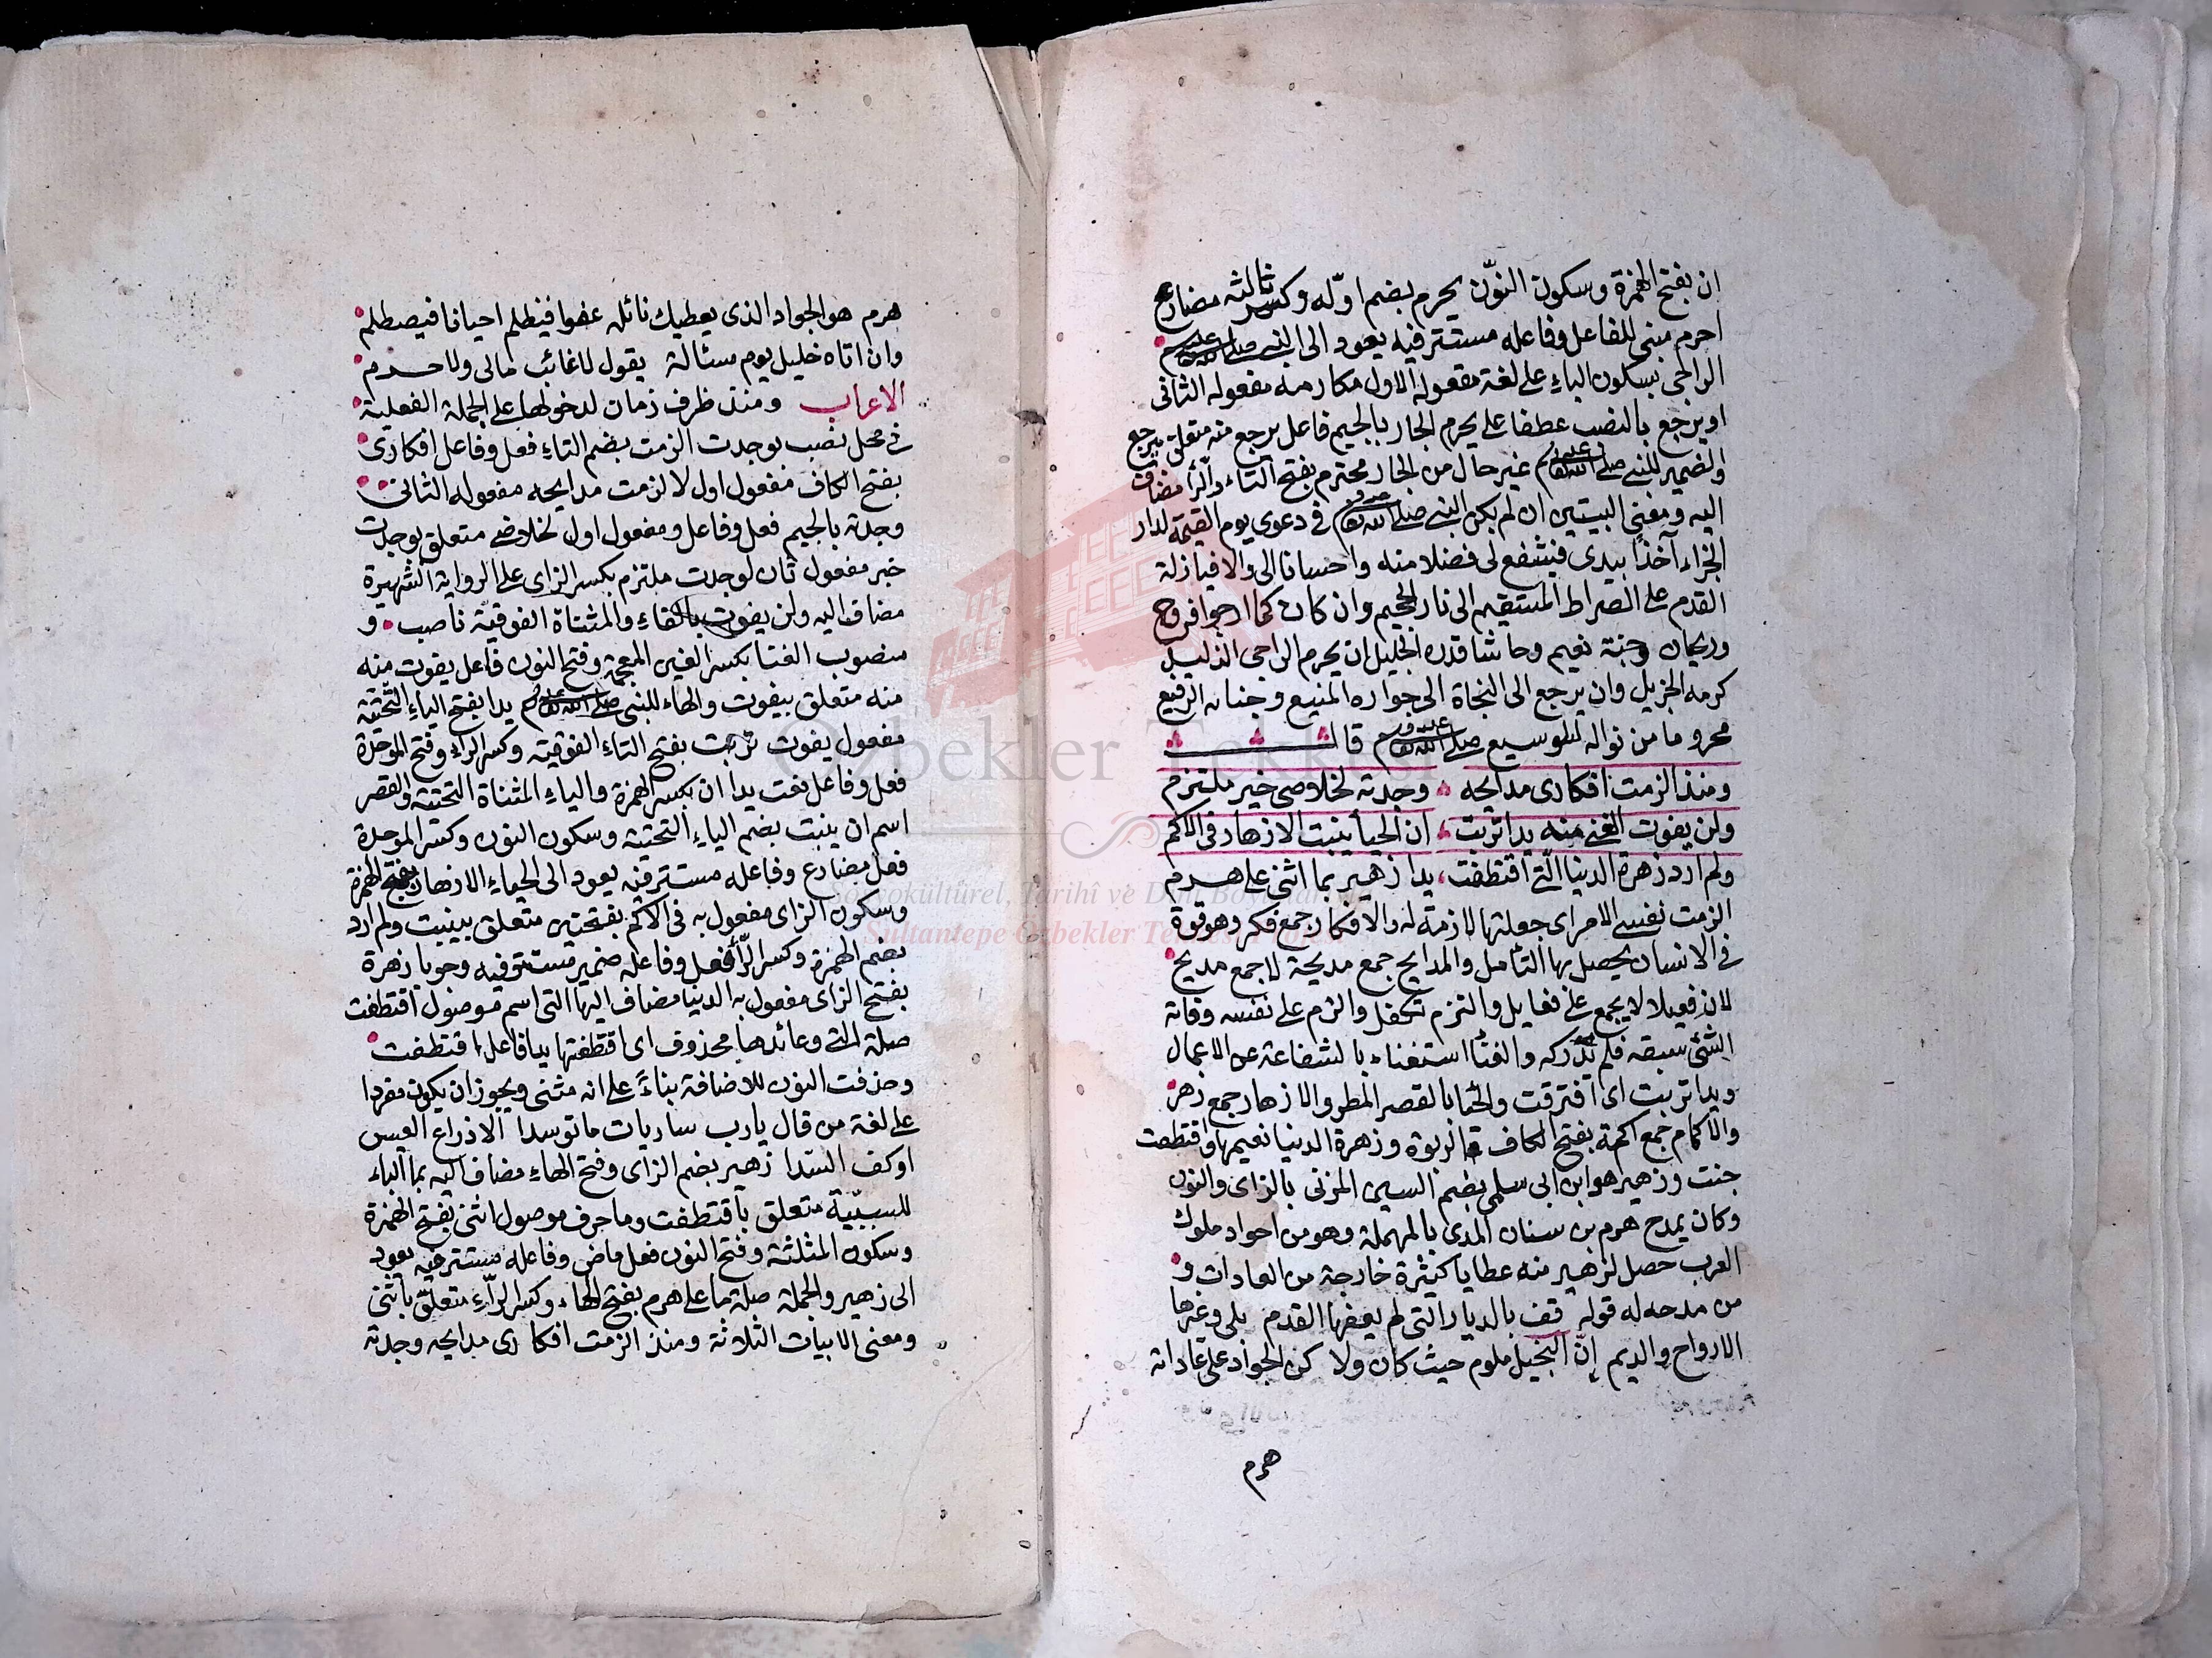 ان بفتح الهمزة وسكون النوّن يحرم بضم اوّله وكسر ثالثه مضارع
احرم مبنى للفاعل وفاعله مستتر فيه يعود الى النبى صلى الله عليه وسلم
الراجى بسكون الياء على لغة مفعوله الاول مكارمه مفعوله الثانى
او يرجع بالنصب عطفا على يحرم الجار بالجيم فاعل يرجع منه متعلق بيرجع
والضمير للنبى صلى الله عليه وسلم غير حال من الجار محترم بفتح التاء والراء مضاف
اليه ومعنى البيتين ان لم يكن النبى صلى الله عليه وسلم فى دعوى يوم القيمة لدار
الجزاء آخذا بيدى فيشفع لى فضلا منه واحسانا الى والا فيا زلة
القدم على الصراط المستقيم الى نار الجحيم وان كان كما ارجوا فروح
وريحان وجنة نعيم وحاشا قدره الجليل ان يحرم الراجى الذليل
كرمه الجزيل وان يرجع الى النجاة الى جواره المنيع وجنابه الرفيع
محروما من نواله الوسيع صلى الله عليه وسلم قال
ومنذ الزمت افكارى مدايحه وجدته لخلاصى خير ملتزم
ولن يفوت الغنى منه يدا تربت ان الحيا ينبت الازهار فى الاكم
ولم ارد زهرة الدنيا التى اقتطفت يدا زهير بما اثنى على هرم
الزمت نفسى الامر اى جعلتها لازمة له والافكار جمع فكر وهو قوة
فى الانسان يحصل بها التأمل والمدايح جمع مديحة لا جمع مديح
لان فعيلا لا يجمع على فعايل والتزم تكفل والزم على نفسه وفاته
الشئ سبقه فلم يدركه والغنا استغناء بالشفاعة عن الاعمال
ويدا تربت اى افترقت والحيا بالقصر المطر والازهار جمع زهر
والاكمام جمع اكمة بفتح الكاف الربوة وزهرة الدنيا نعيمها واقتطعت
جنت وزهير هو ابن ابى سلمى بضم السين المزنى بالزاى والنون
وكان يمدح هرم بن سنان المدى بالمهملة وهو من اجواد ملوك
العرب حصل لزهير منه عطايا كثيرة خارجة من العادات و
من مدحه له قوله قف بالديار التى لم يعفها القدم بلى وغيرها
الارواح والديم إنّ البخيل ملوم حيث كان ولا كن الجواد على عاداته
هرم
هرم هو الجواد الذى يعطيك نائله عفوا فيظلم احيانا فيصطلم
وان اتاه خليل يوم مسئالة يقول لا غائب مالى ولا حرم
الاعراب ومنذ ظرف زمان لدخولها على الجملة الفعلية
فى محل نصب بوجدت الزمت بضم التاء فعل وفاعل افكارى
بفتح الكاف مفعول اول لالزمت مدايحه مفعوله الثانى
وجدته بالجيم فعل وفاعل ومفعول اول لخلاصى متعلق بوجدت
خير مفعول ثان لوجدت ملتزم بكسر الزاى على الرواية الشهيرة
مضاف اليه ولن يفوت بالفاء والمثناة الفوقية ناصب و
منصوب الغنا بكسر الغين المعجمة وفتح النون فاعل يفوت منه
منه متعلق بيفوت والهاء للنبى صلى الله عليه وسلم يدا بفتح الياء التحتية
مفعول يفوت تربت بفتح التاء الفوقية وكسر الراء وفتح الموحدة
فعل وفاعل نعت يدا ان بكسر الهمزة والياء المثناة التحتية والقصر
اسم ان ينبت بضم الياء التحتية وسكون النون وكسر الموحدة
فعل مضارع وفاعله مستتر فيه يعود الى الحياء الازهار بفتح الهمزة
وسكون الزاى مفعول به فى الاكم بفتحتين متعلق بينبت ولم ارد
بضم الهمزة وكسر الرّاء فعل وفاعله ضمير مستتر فيه وجوبا زهرة
بفتح الزاى مفعول به الدنيا مضاف اليها التى اسم موصول اقتطفت
صلة التى وعائدها محذوف اى اقتطفتها يدا فاعل اقتطفت
وحذفت النون للاضافة بناءً على انه مثنى ويجوز ان يكون مفردا
على لغة من قال يا رب ساريات ما توسدا الا ذراع العيس
او كف اليدا زهير بضم الزاى وفتح الهاء مضاف اليه بما الباء
للسببيّة متعلق باقتطفت وما حرف موصول اثنى بفتح الهمزة
وسكون المثلثة وفتح النون فعل ماض وفاعله مستتر فيه يعود
الى زهير والجملة صلة ما على هرم بفتح الهاء وكسر الرّاء متعلق باثنى
ومعنى الابيات الثلاثة ومنذ الزمت افكارى مدايحه وجدته
Özbekler Tekkesi
Sosyokültürel, Tarihî ve Dinî
Sultantepe Özbekler Tekkesi Projesi